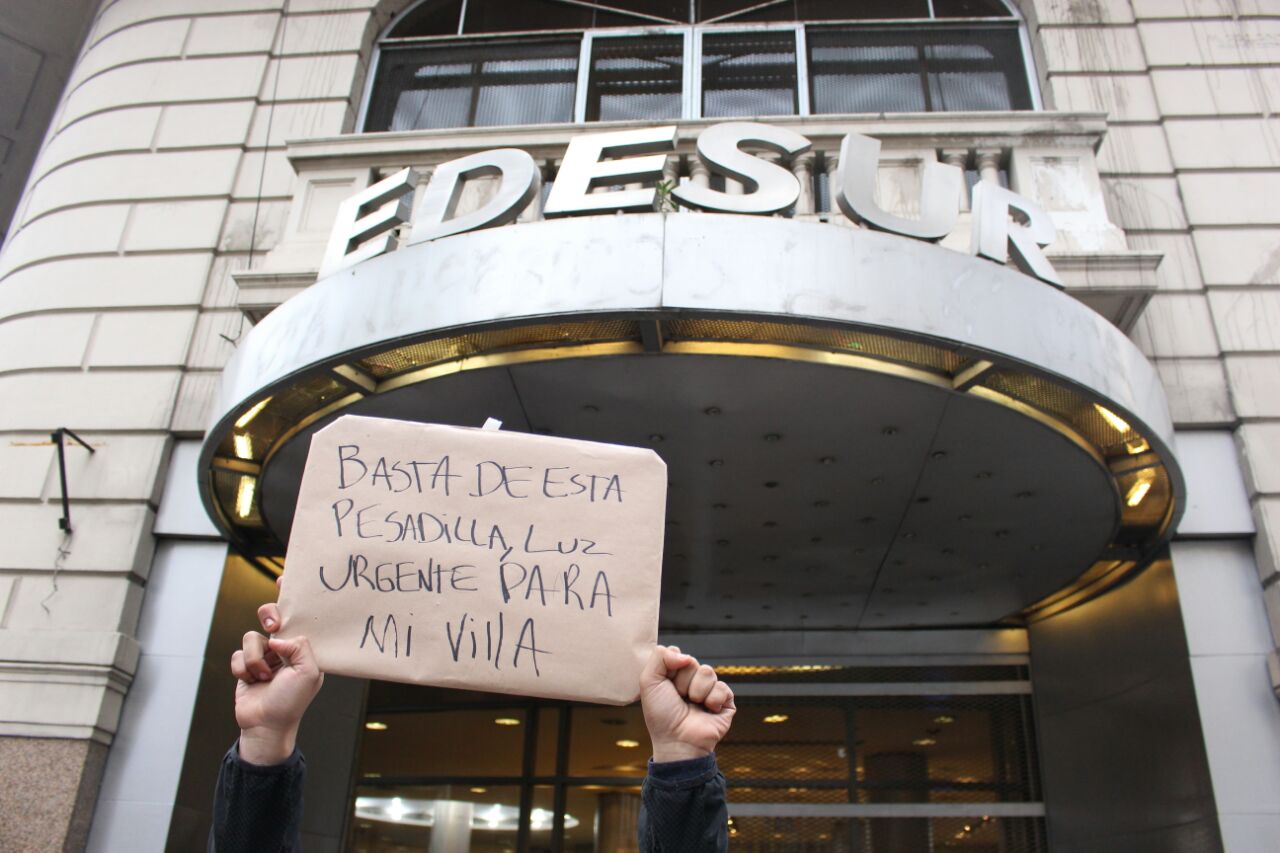 EDESUR
BASTA DE ESTA
PESADILLA, LUZ
URGENTE PARA
MI VIllA